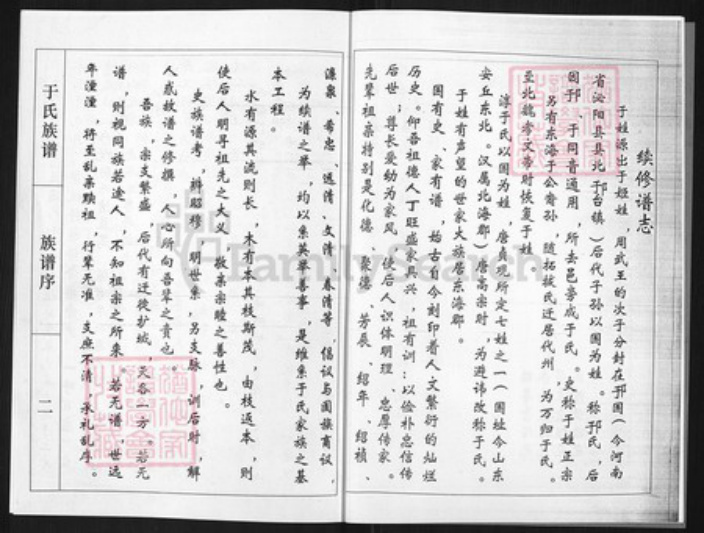 续修谱志
于姓源出于姬姓,周武王的次子分封在邘国(今河南
省泌阳县县北于邘台镇)后代子孙以国为姓。称邘氏,后
因邘、于同音通用,所去邑旁成于氏。史称于姓正宗
另有东海于公裔孙,随拓拔氏迁居代州,为万归于氏。
至北魏孝文帝时恢复于姓
淳于氏以国为姓,唐贞观所定七姓之一(国址今山东
安丘东北。汉属北海郡)唐高宗时,为避讳改称于氏。
于姓有声望的世家大族居东海郡。
国有史、家有谱,始古今刻印着人文繁衍的灿烂
历史。仰吾祖德人丁旺盛家具兴,祖有训:以俭朴忠信传
后世;尊长爱幼为家风,使后人识体明理、忠厚传家。
先辈祖亲特别是化德、聚德、芳展、绍年、绍祯、
濂泉、希忠、远清、文清、春清等,倡议与国族商议,
为续谱之举,均以集英举善事,是维系于氏家族之基
本工程。
水有源其流则长,木有本其枝斯茂,由枝返本,则
使后人明寻祖先之大义,敬亲宗睦之善性也。
史族谱考,辨昭穆,明世系,另支脉,训后时,解
人惑故谱之修撰,人心所向吾辈之责也。
吾族,宗支繁盛,后代有迁徙扩城,天各一方。若无
谱,则视同族若途人,不知祖宗之所来。若无谱,世远
年湮,将至乱亲黩祖,行辈无准,支庶不清,承礼乱序。
于氏族谱
族谱序
二
FamilySearch